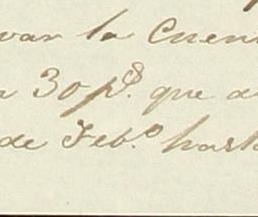 var la Cuen
30 p.s que a
de Feb.o hast